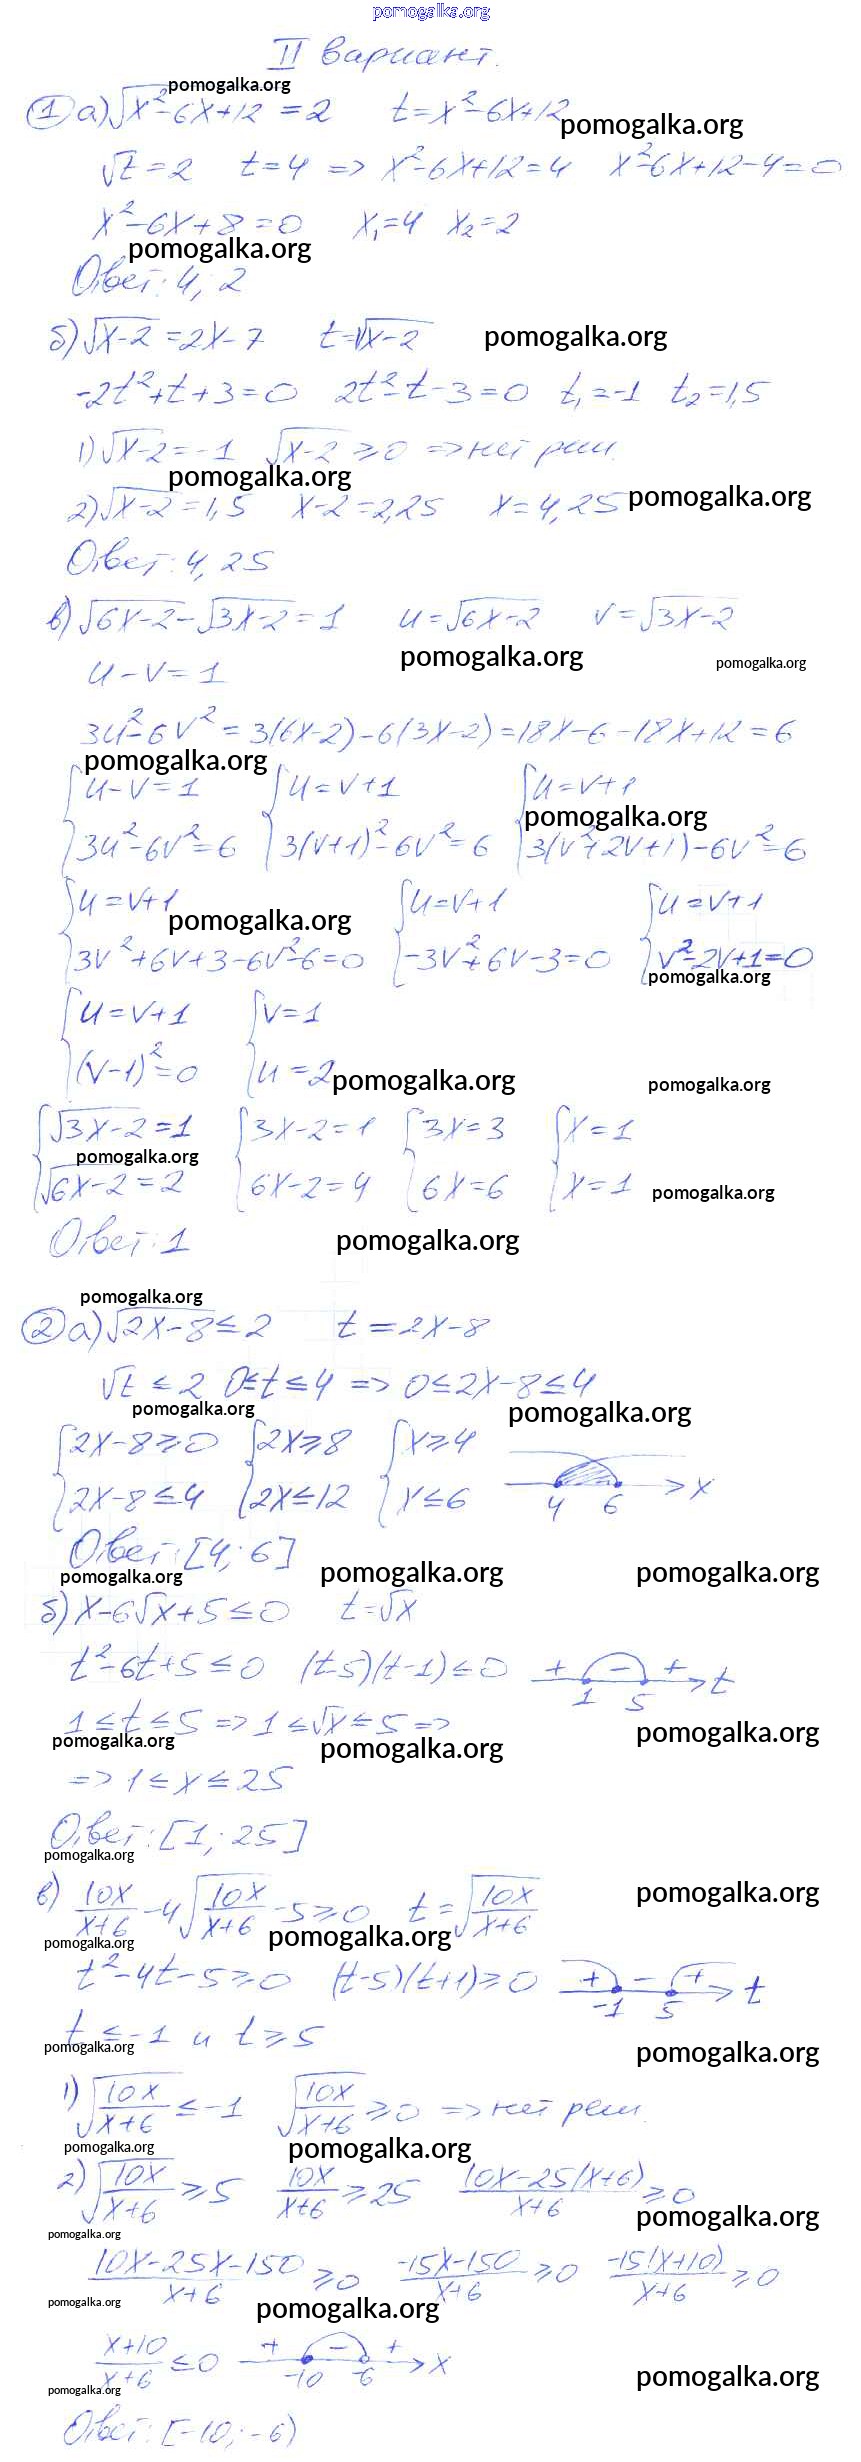 pomogalka.org
II вариант.
pomogalka.org
① а) √(x²-6x+12) = 2 t = x²-6x+12
pomogalka.org
√t = 2 t = 4 => x²-6x+12=4 x²-6x+12-4=0
x²-6x+8=0 x₁=4 x₂=2
pomogalka.org
Ответ: 4; 2
б) √(x-2) = 2x-7 t=√(x-2) pomogalka.org
-2t²+t+3=0 2t²-t-3=0 t₁=-1 t₂=1,5
1) √(x-2) = -1 √(x-2) ≥ 0 => нет реш.
pomogalka.org
2) √(x-2) = 1,5 x-2=2,25 x=4,25 pomogalka.org
Ответ: 4,25
в) √(6x-2) - √(3x-2) = 1 u=√(6x-2) v=√(3x-2)
pomogalka.org pomogalka.org
u-v=1
3u²-6v² = 3(6x-2)-6(3x-2)=18x-6-18x+12=6
pomogalka.org
{u-v=1 {u=v+1 {u=v+1
pomogalka.org
{3u²-6v²=6 {3(v+1)²-6v²=6 {3(v²+2v+1)-6v²=6
{u=v+1 {u=v+1 {u=v+1
pomogalka.org
{3v²+6v+3-6v²-6=0 {-3v²+6v-3=0 {v²-2v+1=0
pomogalka.org
{u=v+1 {v=1
{(v-1)²=0 {u=2 pomogalka.org pomogalka.org
{√(3x-2)=1 {3x-2=1 {3x=3 {x=1
pomogalka.org
{√(6x-2)=2 {6x-2=4 {6x=6 {x=1 pomogalka.org
Ответ: 1 pomogalka.org
pomogalka.org
② а) √(2x-8) ≤ 2 t=2x-8
√t ≤ 2 0≤t≤4 => 0≤2x-8≤4
pomogalka.org pomogalka.org
{2x-8≥0 {2x≥8 {x≥4
{2x-8≤4 {2x≤12 {x≤6 4 6 x
Ответ: [4; 6]
pomogalka.org pomogalka.org pomogalka.org
б) x-6√x+5≤0 t=√x
t²-6t+5≤0 (t-5)(t-1)≤0 + - + 1 5 t
1≤t≤5 => 1≤√x≤5 =>
pomogalka.org pomogalka.org pomogalka.org
=> 1≤x≤25
Ответ: [1; 25]
pomogalka.org
в) 10x/(x+6) - 4√(10x/(x+6)) - 5 ≥ 0 t=√(10x/(x+6)) pomogalka.org
pomogalka.org pomogalka.org
t²-4t-5≥0 (t-5)(t+1)≥0 + - + -1 5 t
t≤-1 и t≥5
pomogalka.org pomogalka.org
1) √(10x/(x+6)) ≤ -1 √(10x/(x+6)) ≥ 0 => нет реш.
pomogalka.org pomogalka.org
2) √(10x/(x+6)) ≥ 5 10x/(x+6) ≥ 25 (10x-25(x+6))/(x+6) ≥ 0
pomogalka.org pomogalka.org
(10x-25x-150)/(x+6) ≥ 0 (-15x-150)/(x+6) ≥ 0 (-15(x+10))/(x+6) ≥ 0
pomogalka.org pomogalka.org
(x+10)/(x+6) ≤ 0 + - + -10 -6 x
pomogalka.org pomogalka.org
Ответ: [-10; -6)